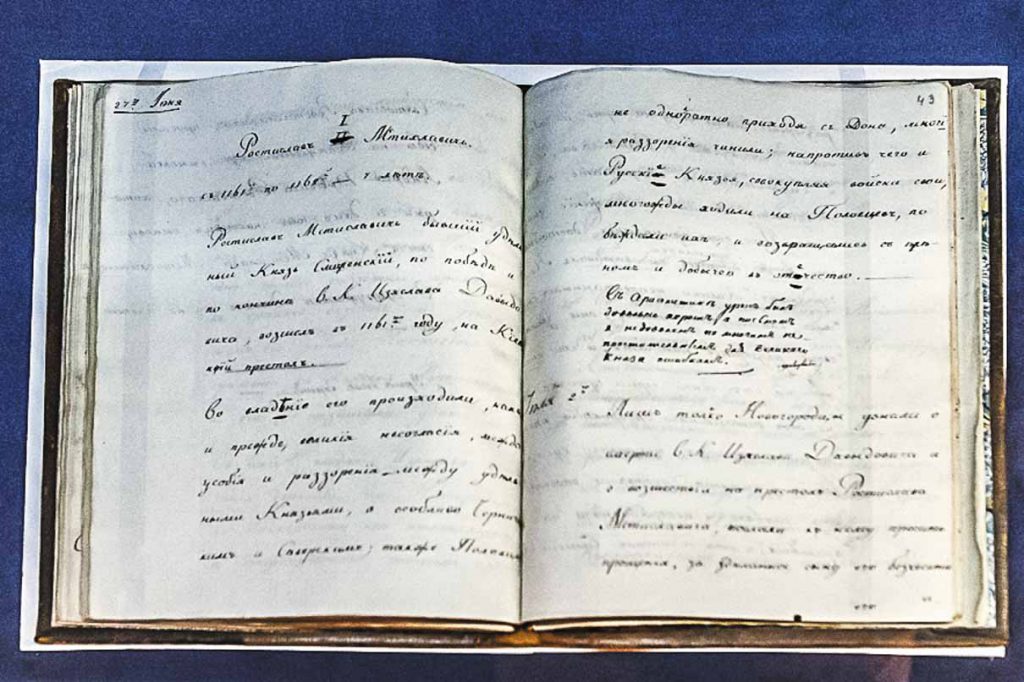 27го Июня
I
Ростиславъ II Мстиславичь.
съ 1161го по 1168го 7 лѣтъ.
Ростиславъ Мстиславичь бывшій удѣль
ный Князь Смоленскій, по побѣдѣ и
по кончинѣ В. К. Изяслава Давыдо
вича, возшелъ въ 1161мъ году, на Кіев
скій престолъ.
Во владѣніе его произходили, какъ
и прежде, великія несогласія, между
усобія и раззоренія между удѣль
ными Князьями, а особливо Черниг
кимъ и Северскимъ; также Половцы
43
не однократно приходя съ Дона, многі
я раззоренія чинили; напротивъ чего и
Рускіе Князья, совокупляя войски свои,
многожды ходили на Половцевъ, по
бѣждали ихъ и возвращались съ плѣ
номъ и добычею въ отечество.
урокъ былъ
довольно хорошъ, а писцомъ
я недоволенъ по многимъ не
простительнымъ для Великаго
Князя ошибкамъ.
Іюля 2го
Лишь только Новогородцы узнали о
смерти В. К. Изяслава Давыдовича и
о возшествіи на престолъ Ростислава
Мстиславича, послали къ нему просить
прощенія, за сыну его